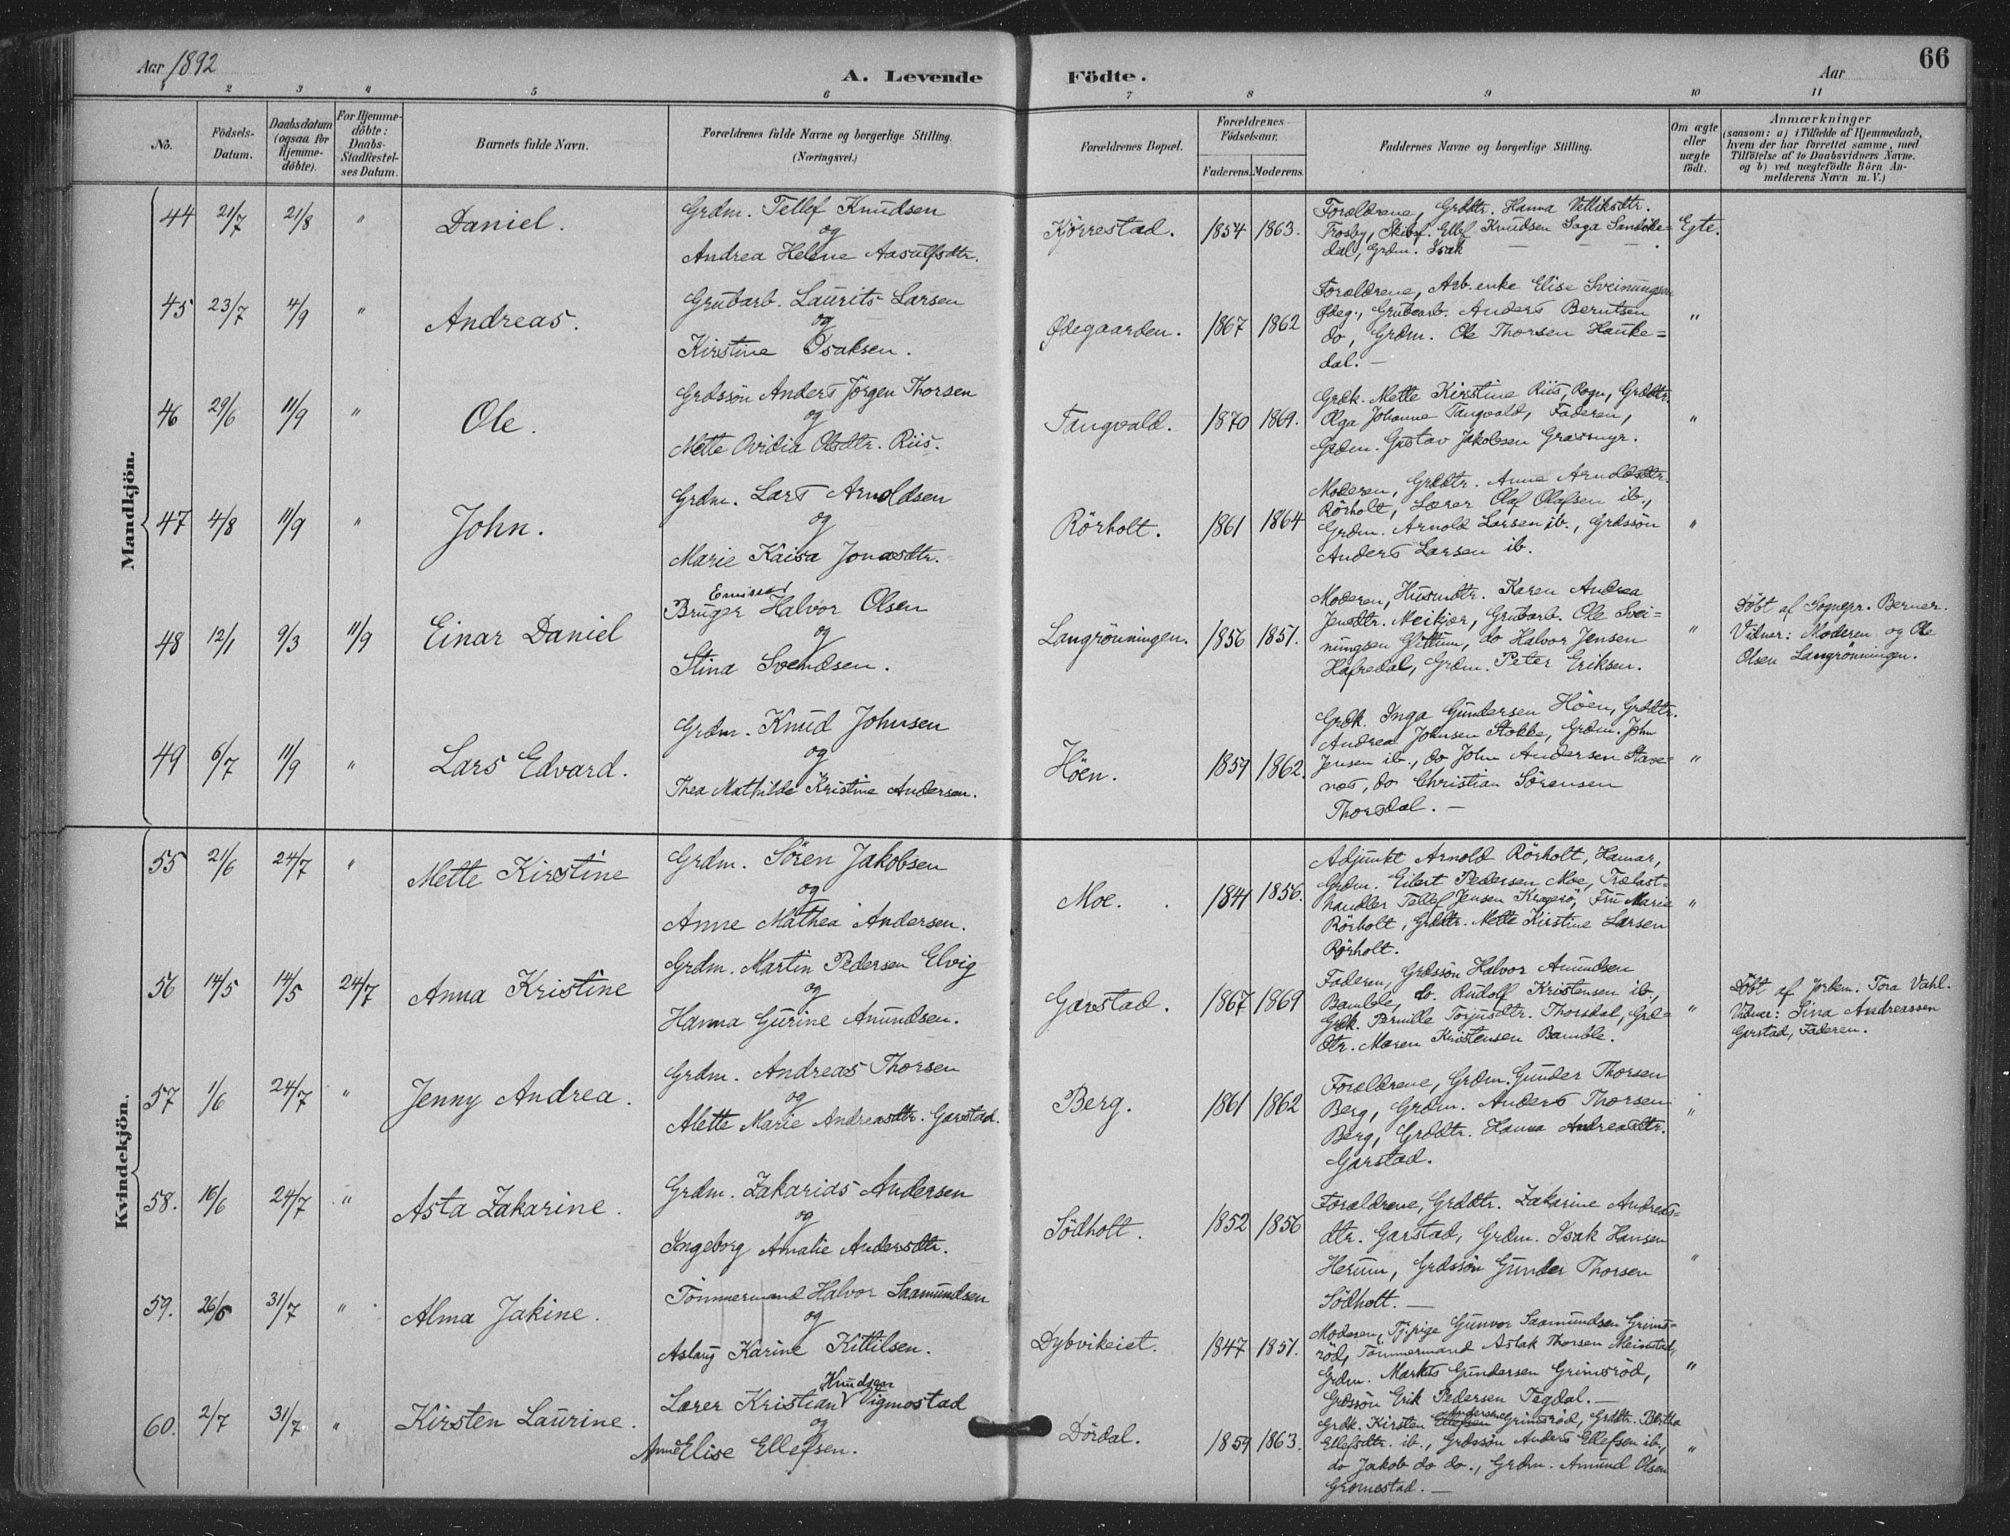 Aar 1892
A. Levende
Födte.
Aar
66
1 2 3 4 5 6 7 8 9 10 11
No.
Födsels-
Datum.
Daabsdatum
(ogsaa for
Hjemme-
döbte).
For Hjemme-
döbte:
Daabs-
Stadfæstel-
ses Datum.
Barnets fulde Navn.
Forældrenes fulde Navne og borgerlige Stilling.
(Næringsvei.)
Forældrenes Bopæl.
Forældrenes
Födselsaar.
Faderens.
Moderens.
Faddernes Navne og borgerlige Stilling.
Om ægte
eller
uægte
födt.
Anmærkninger
(saasom: a) i Tilfælde af Hjemmedaab,
hvem der har forrettet samme, med
Tilföielse af to Daabsvidners Navne.
og b) ved uægtefödte Börn An-
melderens Navn m. V.)
Mandkjön.
44 21/7 21/8 " Daniel.
Grdm. Tellef Knudsen
og
Andrea Helene Aasulfsdtr.
Kjørrestad. 1854 1863.
Forældrene, Grddtr. Hanna
Trosby, Ellef Knudsen
dal, Grdm. Isak
Egte.
45 23/7 4/9 " Andreas.
Grubarb. Laurits Larsen
og
Kirstine Isaksen.
Ødegaarden. 1867 1862
Forældrene, Arb. enke Elise Sveinungsen
Ødeg., Grubearb. Anders Berntsen
do, Grdm. Ole Thorsen Hauke=
dal. —
"
46 29/6 11/9 " Ole.
Grdssön Anders Jørgen Thorsen
og
Mette Olsdtr. Riis.
Tangvald. 1870 1869.
Grdk. Mette Kirstine Riis, Grddtr.
Olga Johanne Tangvald, Faderen,
Grdm. Gustav Jakobsen Græsmyr.
"
47 4/8 11/9 " John.
Grdm. Lars Arnoldsen
og
Marie Kaisa Jonasdtr.
Rörholt. 1861 1864
Moderen, Grddtr. Anne Arnoldsdtr.
Rörholt, Lærer Olaf Olafsen ib.,
Grdm. Arnold Larsen ib., Grdssön
Anders Larsen ib.
"
48 12/1 9/3 11/9 Einar Daniel
Emissær
Bruger Halvor Olsen
og
Stina Svendsen.
Langrönningen. 1856 1851.
Moderen, Husmdtr. Karen Andrea
Jensdtr. Meikjær, Grubarb. Ole Svei-
nungsen Vittum, do Halvor Jensen
Hafredal, Grdm. Peter Eriksen.
"
Døbt af Sognepr. Berner.
Vidner: Moderen og Ole
Olsen Langrönningen.
49 6/7 11/9 " Lars Edvard.
Grdm. Knud Johnsen
og
Thea Mathilde Kristine Andersen.
Höen. 1857 1862.
Grdk. Inga Gundersen Höen, Grddtr.
Andrea Johnsen Stokke, Grdm. John
Jensen ib., do John Andersen Stave-
næs, do Christian Sörensen
Thorsdal. —
"
Kvindekjön.
55 21/6 24/7 " Mette Kirstine
Grdm. Søren Jakobsen
og
Anne Mathea Andersen.
Moe. 1841 1856.
Adjunkt Arnold Rörholt, Hamar,
Grdm. Eilert Pedersen Moe, Trælast=
handler Tellef Jensen Kragerö, Fru Marie
Rörholt, Grddtr. Mette Kirstine Larsen
Rörholt.
"
56 14/5 14/5 24/7 Anna Kristine
Grdm. Martin Pedersen Elvig
og
Hanna Gurine Amundsen.
Garstad. 1867 1869
Faderen, Grdssön Halvor Amundsen
Bamble, do. Rudolf Kristensen ib.,
Grdk. Pernille Torjusdtr. Thorsdal, Grd=
dtr. Maren Kristensen Bamble.
"
Døbt af Jordem. Tora Vahl.
Vidner: Sina Andreassen
Garstad, Faderen.
57 1/6 24/7 " Jenny Andrea.
Grdm. Andreas Thorsen
og
Alette Marie Andreasdtr. Garstad.
Berg. 1861 1862
Forældrene, Grdm. Gunder Thorsen
Berg, Grdm. Anders Thorsen
Berg, Grddtr. Hanna Andreasdtr.
Garstad.
"
58. 16/6 24/7 " Asta Zakarine.
Grdm. Zakarias Andersen
og
Ingeborg Amalie Andersdtr.
Södholt. 1852 1856
Forældrene, Grddtr. Zakarine Andreas-
dtr. Garstad, Grdm. Isak Hansen
Herum, Grdssön Gunder Thorsen
Södholt. —
"
59. 26/6 31/7 " Alma Jakine.
Tömmermand Halvor Saamundsen
og
Aslaug Karine Kittilsen.
Dybvikeiet. 1847 1851.
Moderen, Tj.pige Gunvor Saamundsen Grims-
röd, Tömmermand Aslak Thorsen
Grdm. Markus Gundersen Grimsröd,
Grdssön Erik Pedersen Tegdal. —
"
60. 2/7 31/7 " Kirsten Laurine.
Knudsen
Lærer Kristian V Vigmostad
og
Anne Elise Ellefsen.
Dördal. 1859 1863.
Andersen
Grdk. Kirsten Ellefsen Grimsröd, Grddtr. Bertha
Ellefsdtr. ib., Grdssön Anders Ellefsen ib.,
do Jakob do do., Grdm. Amund Olsen
Gromestad. —
"